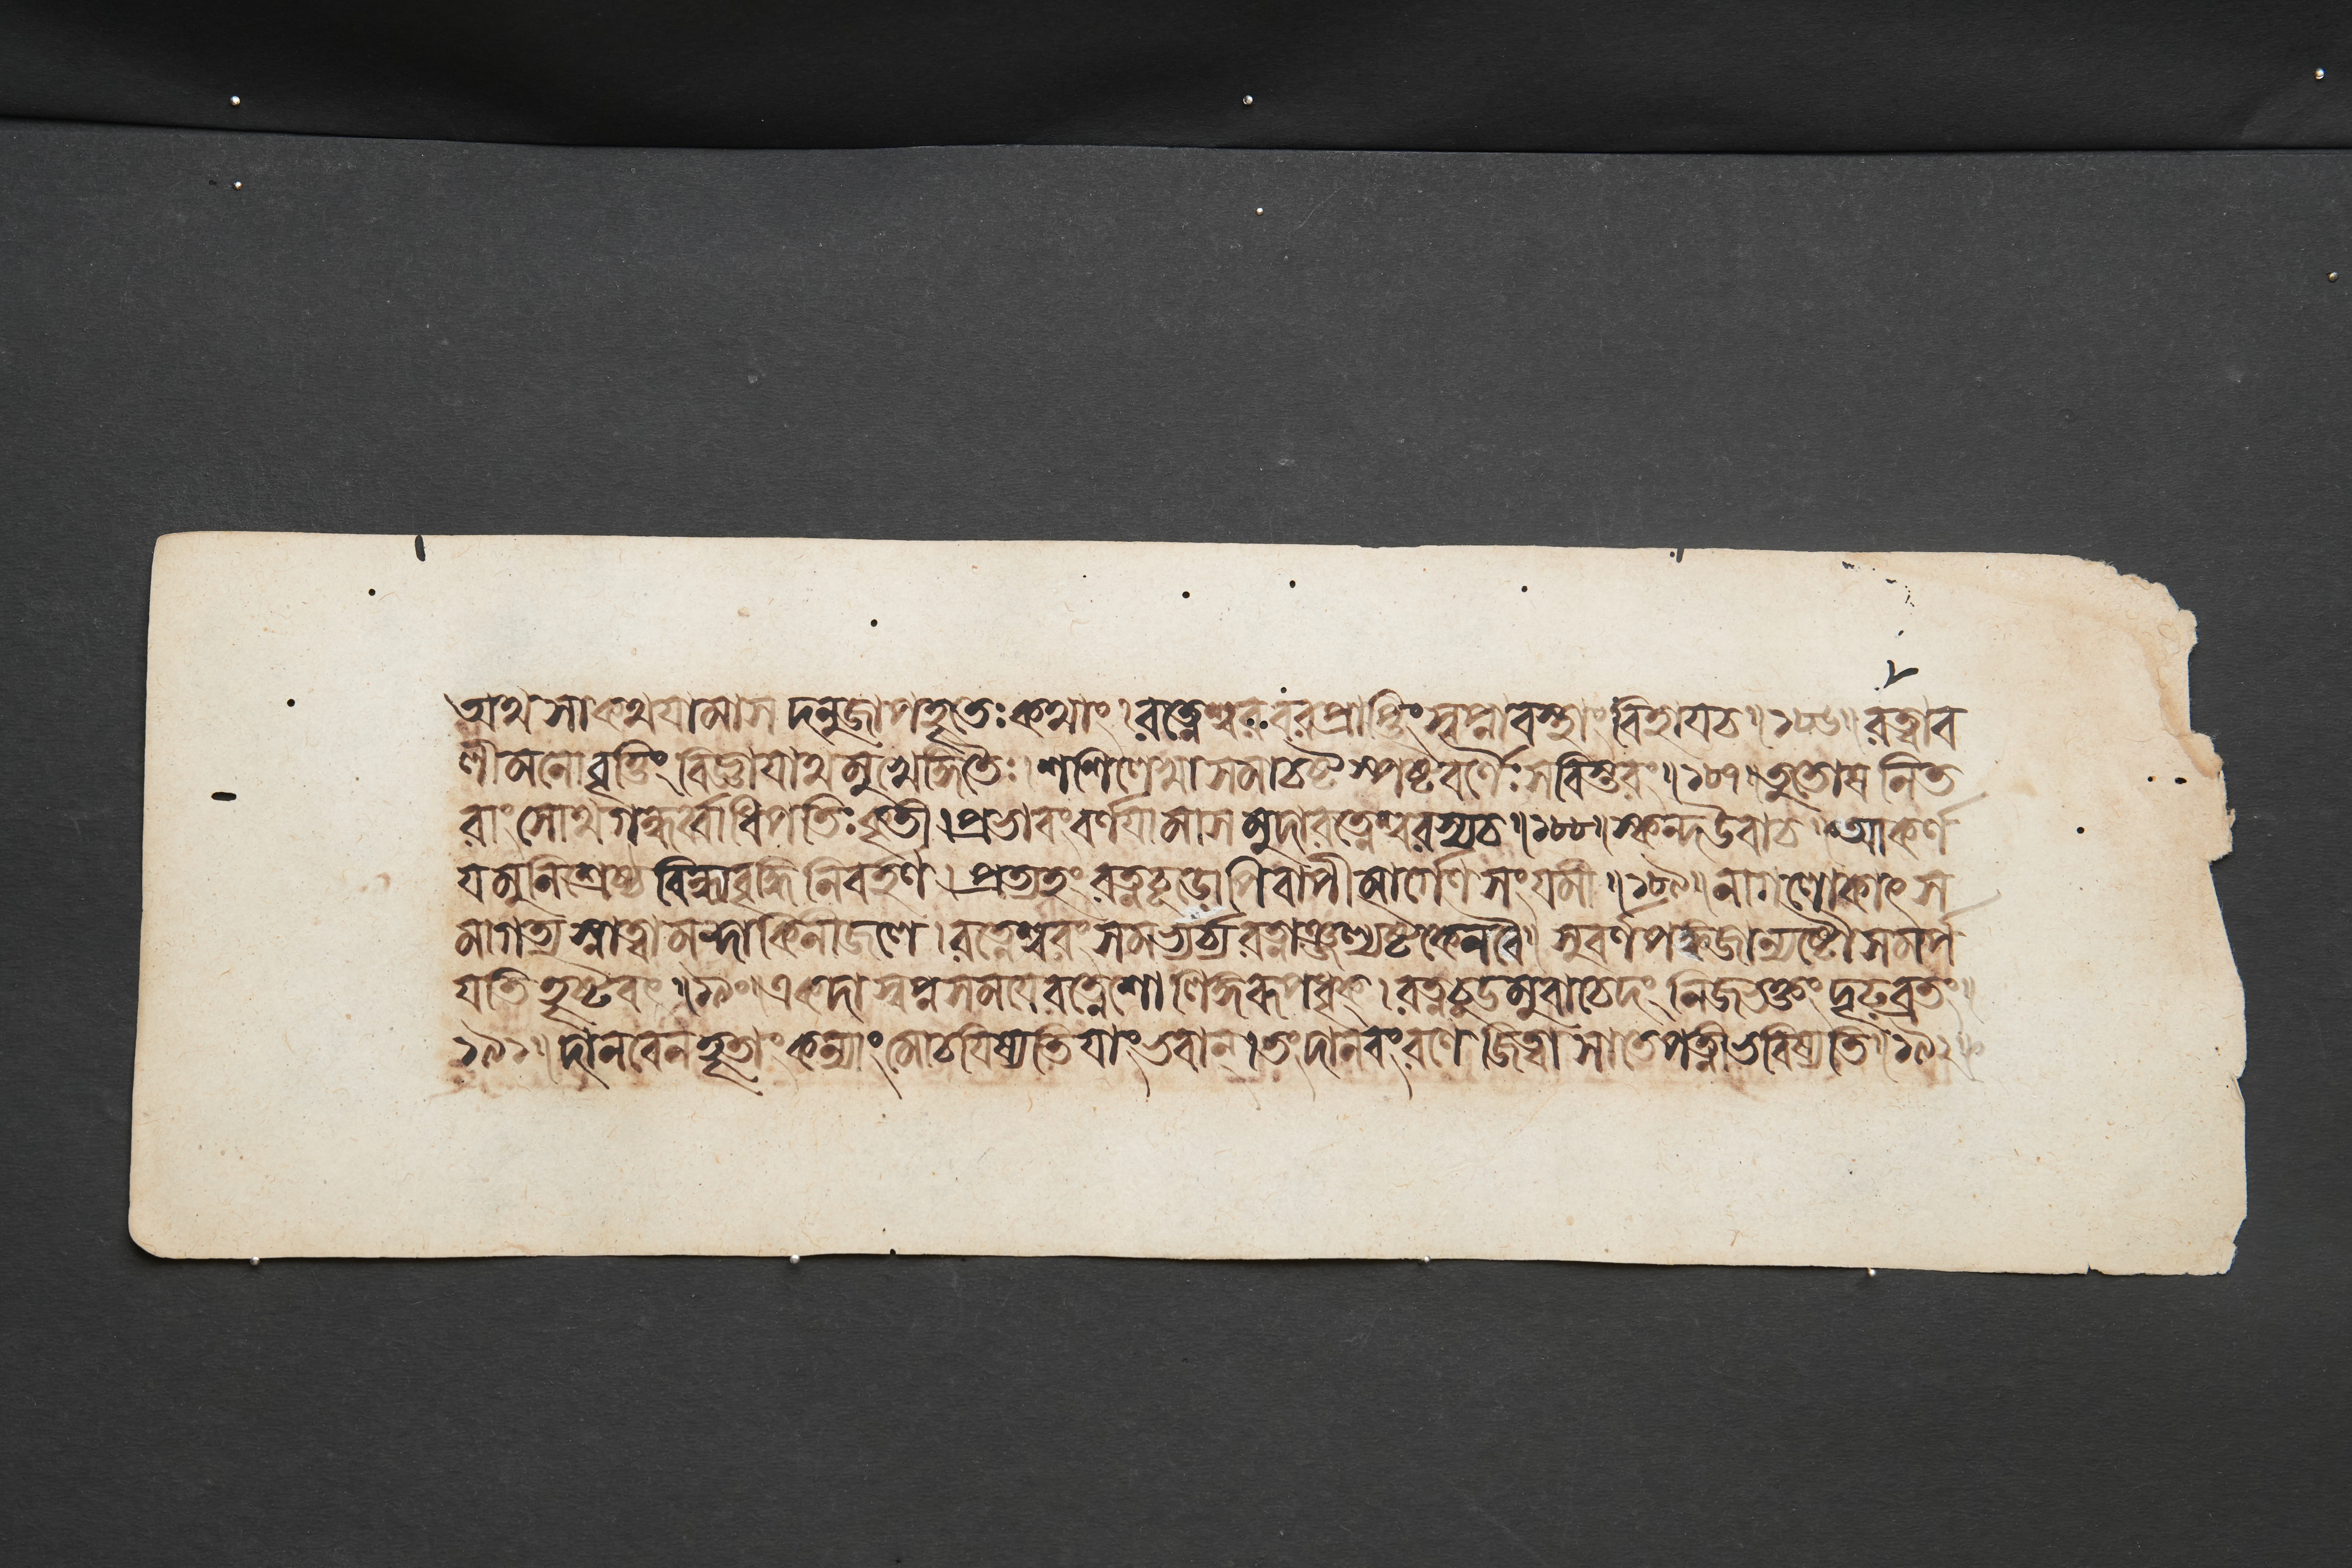 অথ সা কথযামাস দনুজাপহৃতেঃ কথাং । রত্নেশ্বরবরপ্রাপ্তিং স্বপ্নাবস্থাং বিহায চ ॥ ১৮৬ ॥ রত্নাব
লীমনোবৃত্তিং বিজ্ঞাযাথ মুখেঙ্গিতৈঃ । শশিলেখা সমাচষ্ট স্পষ্টবর্ণৈঃ সবিস্তরং ॥ ১৮৭ ॥ তুতোষ নিত
রাং সোথ গন্ধর্ব্বাধিপতিঃ কৃতী । প্রভাবং বর্ণযামাস মুদা রত্নেশ্বরস্য চ ॥ ১৮৮ ॥ স্কন্দ উবাচ ॥ আকর্ণ
য মুনিশ্রেষ্ঠ বিন্ধ্যবৃদ্ধিনিবর্হণ । প্রত্যহং রত্নচূডোপি বাপীমার্গেণ সংযমী ॥ ১৮৯ ॥ নাগলোকাৎ স
মাগত্য স্নাত্বা মন্দাকিনীজলে । রত্নেশ্বরং সমভ্যর্চ্য রত্নাঞ্জল্যষ্টকেন বৈ । সুবর্ণপঙ্কজান্যষ্টৌ সমর্প
যতি হৃষ্টবৎ ॥ ১৯০ ॥ একদা স্বপ্নসমযে রত্নেশো লিঙ্গরূপধৃক্ । রত্নচূডমুবাচেদং নিজভক্তং দৃঢব্রতং ॥
১৯১ ॥ দানবেন হৃতাং কন্যাং মোচযিষ্যতি যাং ভবান্ । তং দানবং রণে জিত্বা সা তে পত্নী ভবিষ্যতি ॥ ১৯২ ॥